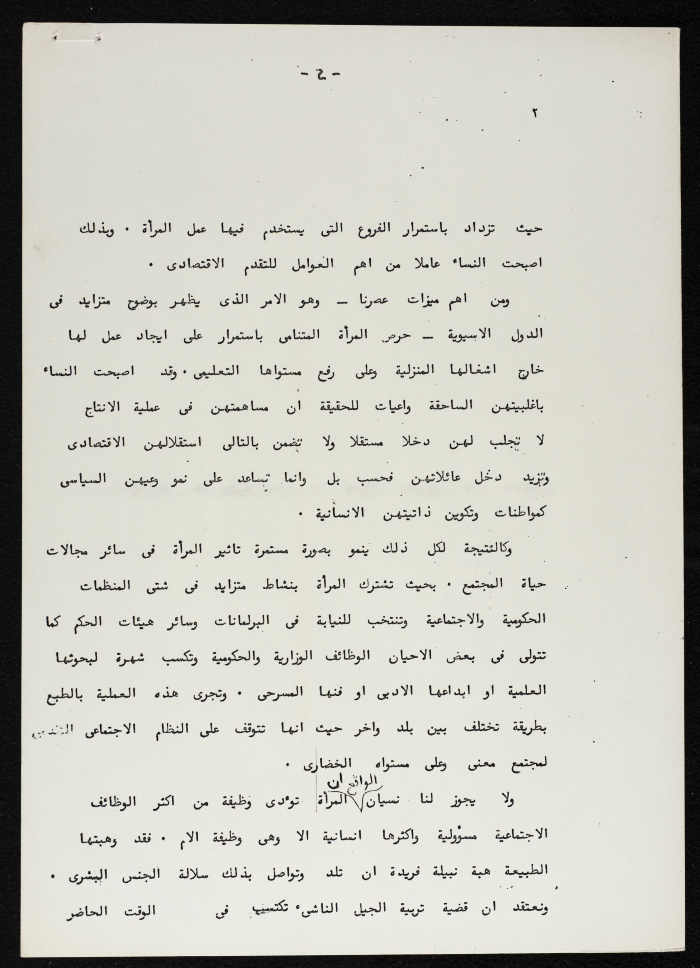 - ٤ -
٢
حيث تزداد باستمرار الفروع التى يستخدم فيها عمل المرأة . وبذلك
اصبحت النساء عاملا من اهم العوامل للتقدم الاقتصادى .
ومن اهم ميزات عصرنا – وهو الامر الذى يظهر بوضوح متزايد فى
الدول الاسيوية – حرص المرأة المتنامى باستمرار على ايجاد عمل لها
خارج اشغالها المنزلية وعلى رفع مستواها التعليمى . وقد اصبحت النساء
باغلبيتهن الساحقة واعيات للحقيقة ان مساهمتهن فى عملية الانتاج
لا تجلب لهن دخلا مستقلا ولا تضمن بالتالى استقلالهن الاقتصادى
وتزيد دخل عائلاتهن فحسب بل وانما تساعد على نمو وعيهن السياسى
كمواطنات وتكوين ذاتيتهن الانسانية .
وكالنتيجة لكل ذلك ينمو بصورة مستمرة تاثير المرأة فى سائر مجالات
حياة المجتمع . بحيث تشترك المرأة بنشاط متزايد فى شتى المنظمات
الحكومية والاجتماعية وتنتخب للنيابة فى البرلمانات وسائر هيئات الحكم كما
تتولى فى بعض الاحيان الوظائف الوزارية والحكومية وتكسب شهرة لبحوثها
العلمية او ابداعها الادبى او فنها المسرحى . وتجرى هذه العملية بالطبع
بطريقة تختلف بين بلد واخر حيث انها تتوقف على النظام الاجتماعى
لمجتمع معنى وعلى مستواه الخضارى .
الواقع ان
ولا يجوز لنا نسيان المرأة تؤدى وظيفة من اكثر الوظائف
الاجتماعية مسؤولية واكثرها انسانية الا وهى وظيفة الام . فقد وهبتها
الطبيعة هبة نبيلة فريدة ان تلد وتواصل بذلك سلالة الجنس البشرى .
ونعتقد ان قضية تربية الجيل الناشىء تكتسب فى الوقت الحاضر